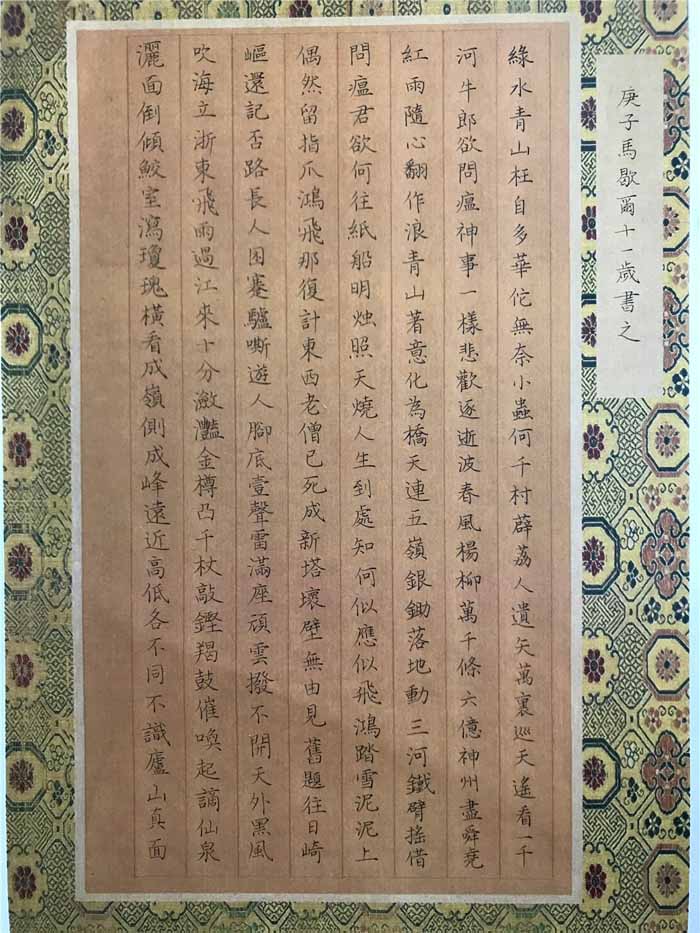 庚子馬歇爾十一歲書之
綠水青山枉自多華佗無奈小蟲何千村薜荔人遺矢萬裏巡天遙看一千
河牛郎欲問瘟神事一樣悲歡逐逝波春風楊柳萬千條六億神州盡舜堯
紅雨隨心翻作浪青山著意化為橋天連五嶺銀鋤落地動三河鐵臂搖借
問瘟君欲何往紙船明烛照天燒人生到處知何似應似飛鴻踏雪泥泥上
偶然留指爪鴻飛那復計東西老僧已死成新塔壞壁無由見舊題往日崎
嶇還記否路長人困蹇驢嘶遊人腳底壹聲雷滿座頑雲撥不開天外黑風
吹海立浙東飛雨過江來十分瀲灩金樽凸千杖敲鏗羯鼓催喚起謫仙泉
灑面倒傾鮫室瀉瓊瑰橫看成嶺側成峰遠近高低各不同不識廬山真面